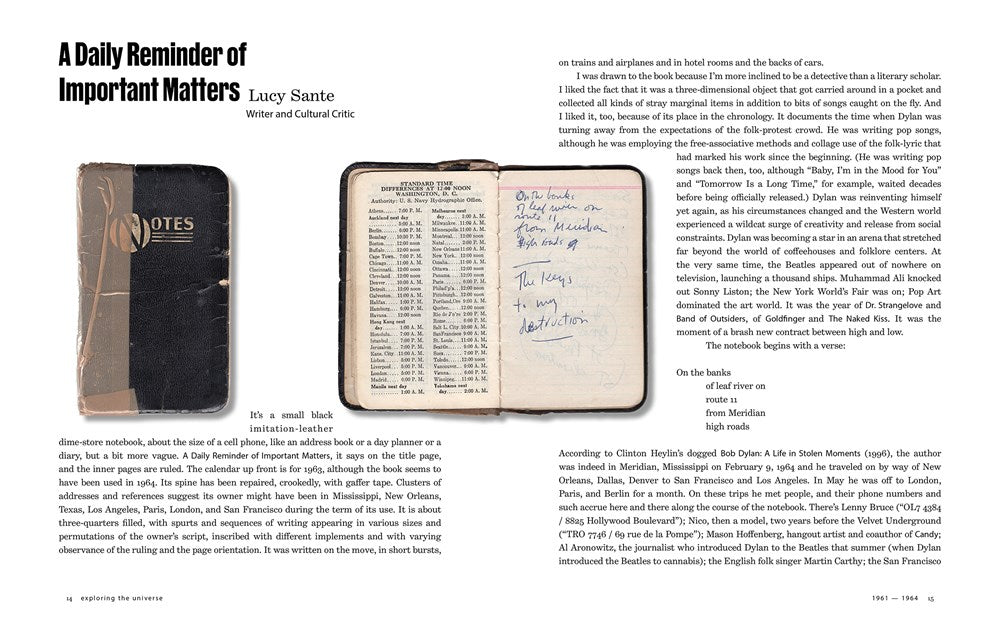 A Daily Reminder of
Important Matters
Lucy Sante
Writer and Cultural Critic
NOTES
STANDARD TIME
DIFFERENCES AT 12:00 NOON
WASHINGTON, D. C.
Authority: U. S. Navy Hydrographic Office.
Athens....... 7:00 P. M.
Auckland next
day....... 5:00 A. M.
Berlin....... 6:00 P. M.
Bombay....10:30 P. M.
Boston......12:00 noon
Buffalo......12:00 noon
Cape Town.. 7:00 P. M.
Chicago.....11:00 A. M.
Cincinnati..12:00 noon
Cleveland...12:00 noon
Denver......10:00 A. M.
Detroit......12:00 noon
Galveston...11:00 A. M.
Halifax...... 1:00 P. M.
Hamburg.... 6:00 P. M.
Havana......12:00 noon
Hong Kong next
day....... 1:00 A. M.
Honolulu.... 7:00 A. M.
Istanbul..... 7:00 P. M.
Jerusalem... 7:00 P. M.
Kans. City..11:00 A. M.
Lisbon....... 5:00 P. M.
Liverpool.... 5:00 P. M.
London...... 5:00 P. M.
Madrid...... 6:00 P. M.
Manila next day
1:00 A. M.
Melbourne next
day....... 3:00 A. M.
Milwaukee..11:00 A. M.
Minneapolis 11:00 A. M.
Montreal....12:00 noon
Natal........ 2:00 P. M.
New Orleans 11:00 A. M.
New York...12:00 noon
Omaha......11:00 A. M.
Ottawa......12:00 noon
Panama.....12:00 noon
Paris........ 6:00 P. M.
Philad'p'a...12:00 noon
Pittsburgh..12:00 noon
Portland, Ore 9:00 A. M.
Quebec......12:00 noon
Rio de J'n'ro 2:00 P. M.
Rome........ 6:00 P. M.
Salt L. City.10:00 A. M.
San Francisco 9:00 A. M.
St. Louis....11:00 A. M.
Seattle....... 9:00 A. M.
Suez......... 7:00 P. M.
Toledo.......12:00 noon
Vancouver... 9:00 A. M.
Vienna....... 6:00 P. M.
Winnipeg...11:00 A. M.
Yokohama next
day....... 2:00 A. M.
On the banks
of leaf river on
route 11
from Meridian
high roads
The Keys
to my
destruction
It's a small black
imitation-leather
dime-store notebook, about the size of a cell phone, like an address book or a day planner or a
diary, but a bit more vague. A Daily Reminder of Important Matters, it says on the title page,
and the inner pages are ruled. The calendar up front is for 1963, although the book seems to
have been used in 1964. Its spine has been repaired, crookedly, with gaffer tape. Clusters of
addresses and references suggest its owner might have been in Mississippi, New Orleans,
Texas, Los Angeles, Paris, London, and San Francisco during the term of its use. It is about
three-quarters filled, with spurts and sequences of writing appearing in various sizes and
permutations of the owner's script, inscribed with different implements and with varying
observance of the ruling and the page orientation. It was written on the move, in short bursts,
on trains and airplanes and in hotel rooms and the backs of cars.
I was drawn to the book because I'm more inclined to be a detective than a literary scholar.
I liked the fact that it was a three-dimensional object that got carried around in a pocket and
collected all kinds of stray marginal items in addition to bits of songs caught on the fly. And
I liked it, too, because of its place in the chronology. It documents the time when Dylan was
turning away from the expectations of the folk-protest crowd. He was writing pop songs,
although he was employing the free-associative methods and collage use of the folk-lyric that
had marked his work since the beginning. (He was writing pop
songs back then, too, although “Baby, I'm in the Mood for You”
and “Tomorrow Is a Long Time,” for example, waited decades
before being officially released.) Dylan was reinventing himself
yet again, as his circumstances changed and the Western world
experienced a wildcat surge of creativity and release from social
constraints. Dylan was becoming a star in an arena that stretched
far beyond the world of coffeehouses and folklore centers. At
the very same time, the Beatles appeared out of nowhere on
television, launching a thousand ships. Muhammad Ali knocked
out Sonny Liston; the New York World's Fair was on; Pop Art
dominated the art world. It was the year of Dr. Strangelove and
Band of Outsiders, of Goldfinger and The Naked Kiss. It was the
moment of a brash new contract between high and low.
The notebook begins with a verse:
On the banks
of leaf river on
route 11
from Meridian
high roads
According to Clinton Heylin's dogged Bob Dylan: A Life in Stolen Moments (1996), the author
was indeed in Meridian, Mississippi on February 9, 1964 and he traveled on by way of New
Orleans, Dallas, Denver to San Francisco and Los Angeles. In May he was off to London,
Paris, and Berlin for a month. On these trips he met people, and their phone numbers and
such accrue here and there along the course of the notebook. There's Lenny Bruce (“OL7 4384
/ 8825 Hollywood Boulevard”); Nico, then a model, two years before the Velvet Underground
(“TRO 7746 / 69 rue de la Pompe”); Mason Hoffenberg, hangout artist and coauthor of Candy;
Al Aronowitz, the journalist who introduced Dylan to the Beatles that summer (when Dylan
introduced the Beatles to cannabis); the English folk singer Martin Carthy; the San Francisco
14 exploring the universe
1961 — 1964 15